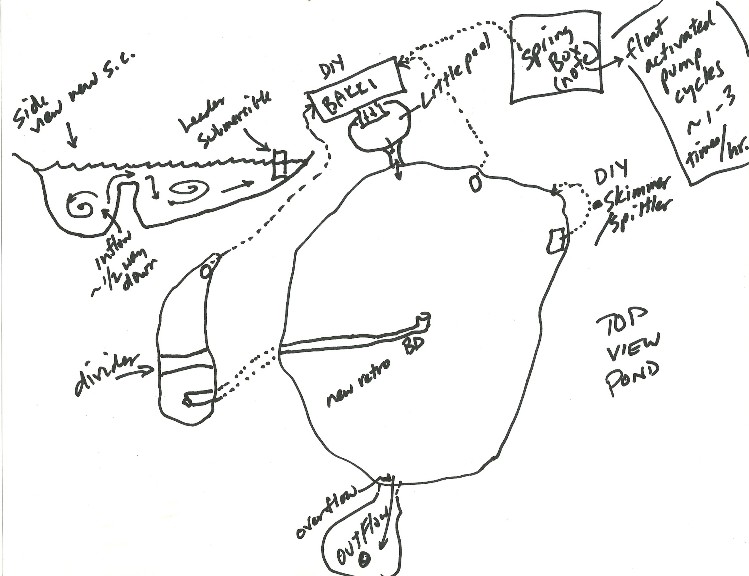 Side
view new s.c.
Leader
submersible
inflow
~1/2 way
down
DIY
BAKKI
Little pool
Spring
Box
(note)
float
activated
pump
cycles
~1-3
times/hr.
DIY
skimmer
/spitter
divider
new retro
BD
TOP
VIEW
POND
overflow
OUTFlow